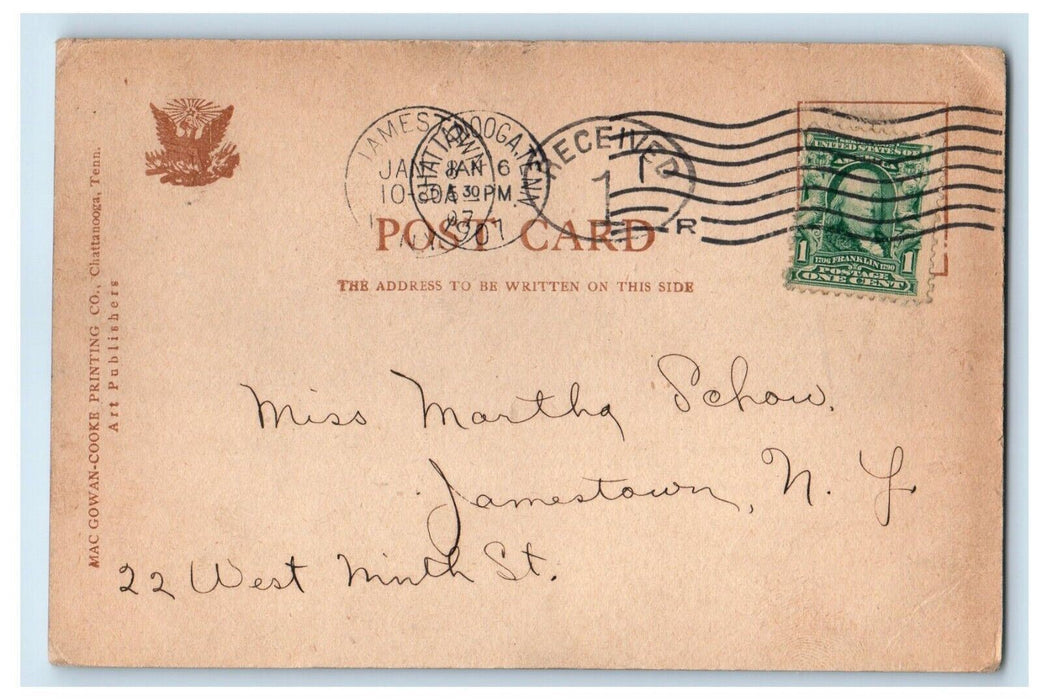 JAMESTOWN
JAN 8
10-30A
N.Y.
CHATTANOOGA, TENN.
JAN 6
5 30 PM
1907
RECEIVED
1
R
UNITED STATES OF
1706 FRANKLIN 1790
1 POSTAGE 1
ONE CENT
POST CARD
THE ADDRESS TO BE WRITTEN ON THIS SIDE
MAC GOWAN-COOKE PRINTING CO., Chattanooga, Tenn.
Art Publishers
Miss Martha Schow.
Jamestown, N. Y
22 West Ninth St.